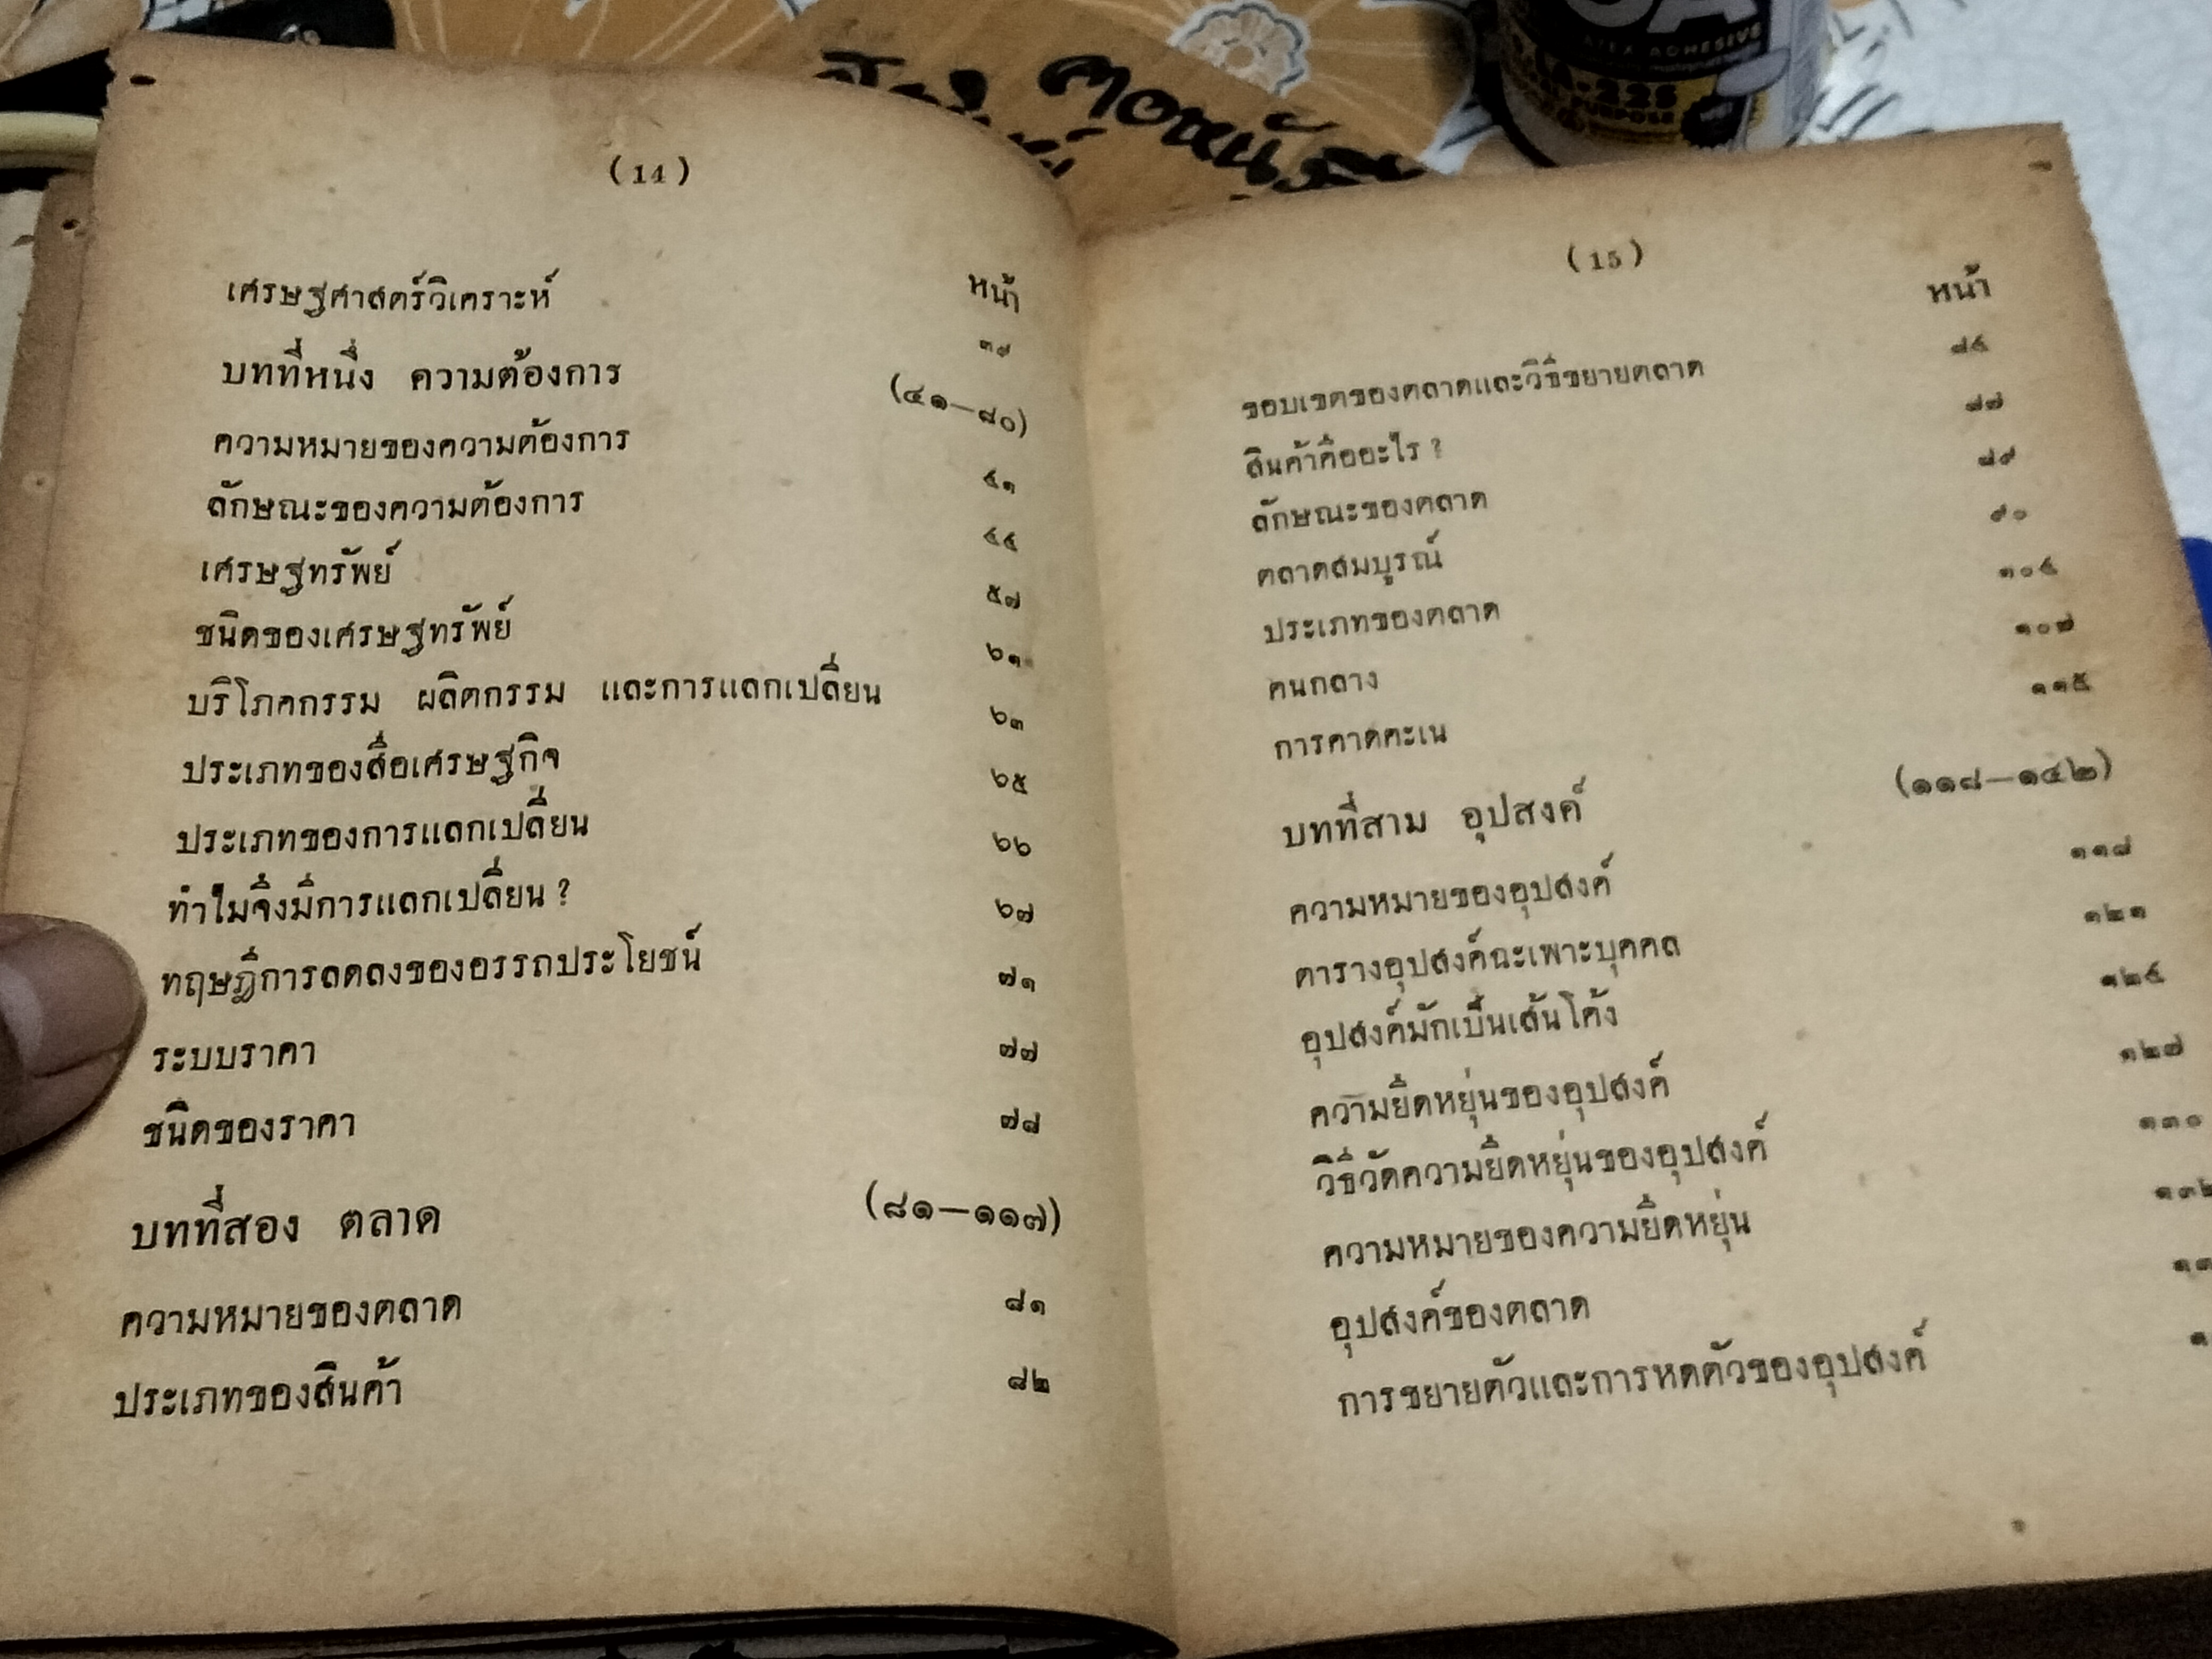 (14)
หน้า
เศรษฐศาสตร์วิเคราะห์ ๓๙
บทที่หนึ่ง ความต้องการ (๔๑—๘๐)
ความหมายของความต้องการ ๔๑
ลักษณะของความต้องการ ๔๔
เศรษฐทรัพย์ ๕๗
ชนิดของเศรษฐทรัพย์ ๖๑
บริโภคกรรม ผลิตกรรม และการแลกเปลี่ยน ๖๓
ประเภทของสื่อเศรษฐกิจ ๖๕
ประเภทของการแลกเปลี่ยน ๖๖
ทำไมจึงมีการแลกเปลี่ยน ? ๖๗
ทฤษฎีการลดลงของอรรถประโยชน์ ๗๑
ระบบราคา ๗๗
ชนิดของราคา ๗๘
บทที่สอง ตลาด (๘๑—๑๑๗)
ความหมายของตลาด ๘๑
ประเภทของสินค้า ๘๒
(15)
หน้า
ขอบเขตของตลาดและวิธีขยายตลาด ๘๔
สินค้าคืออะไร ? ๘๗
ลักษณะของตลาด ๘๙
ตลาดสมบูรณ์ ๙๐
ประเภทของตลาด ๑๐๔
คนกลาง ๑๐๗
การคาดคะเน ๑๑๕
บทที่สาม อุปสงค์ (๑๑๘—๑๔๒)
ความหมายของอุปสงค์ ๑๑๘
ตารางอุปสงค์ฉะเพาะบุคคล ๑๒๑
อุปสงค์มักเป็นเส้นโค้ง ๑๒๔
ความยืดหยุ่นของอุปสงค์ ๑๒๗
วิธีวัดความยืดหยุ่นของอุปสงค์ ๑๓๐
ความหมายของความยืดหยุ่น ๑๓๒
อุปสงค์ของตลาด
การขยายตัวและการหดตัวของอุปสงค์